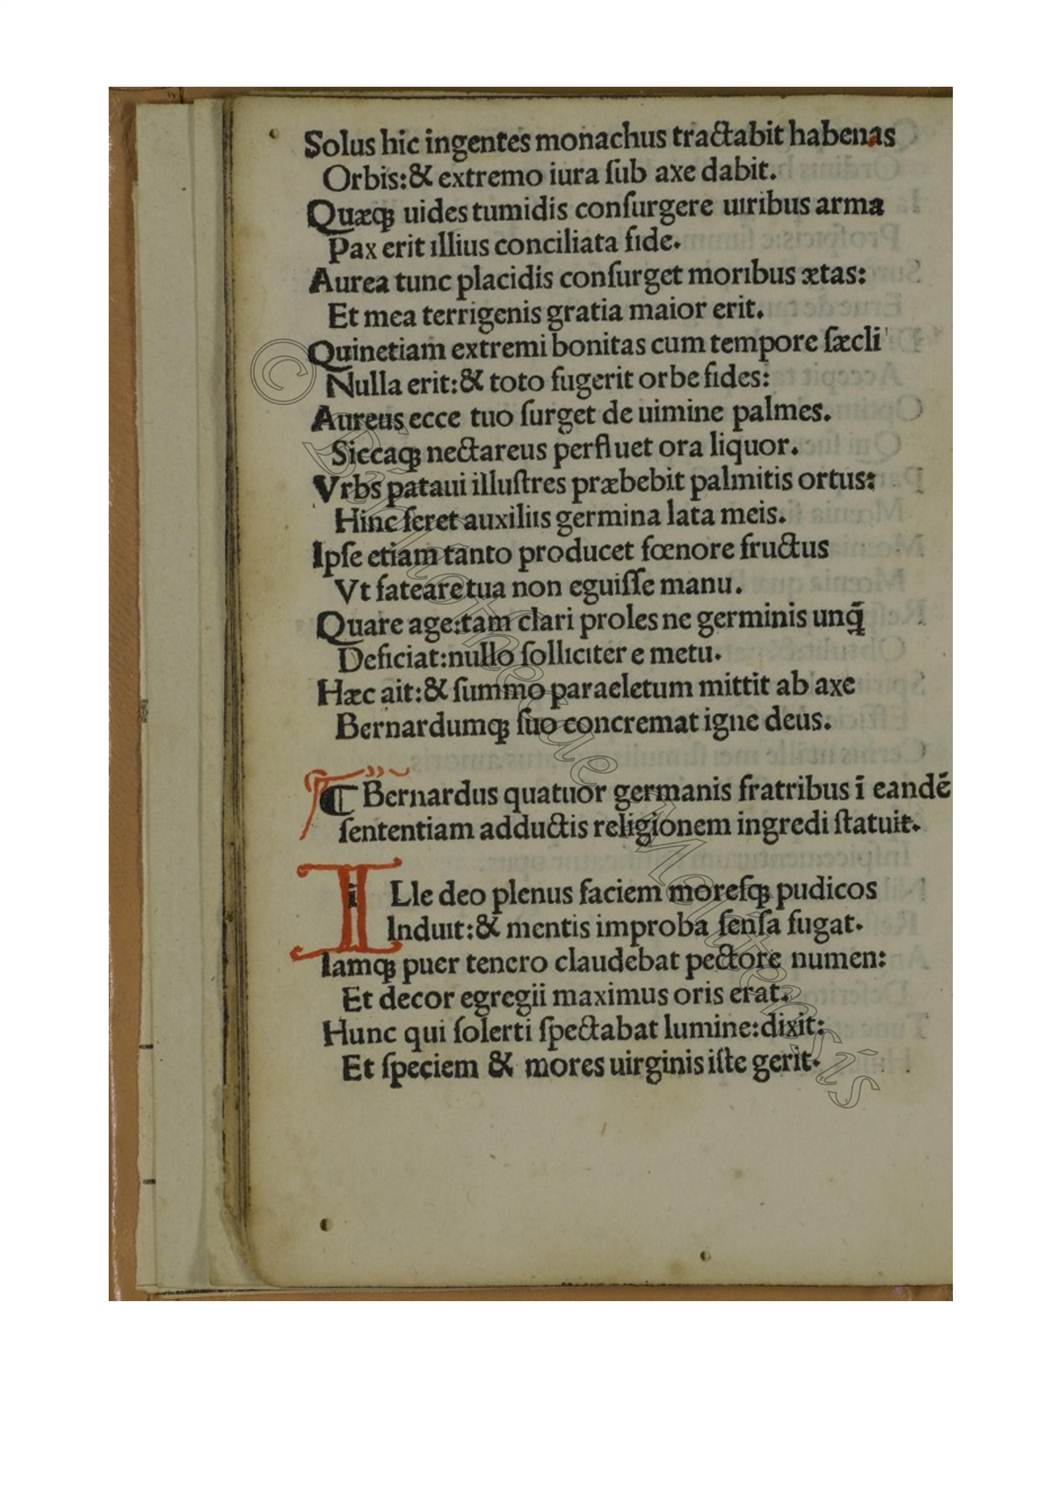 Solus hic ingentes monachus tractabit habenas
Orbis:& extremo iura ſub axe dabit.
Quæqꝫ uides tumidis conſurgere uiribus arma
Pax erit illius conciliata fide.
Aurea tunc placidis conſurget moribus ætas:
Et mea terrigenis gratia maior erit.
Quinetiam extremi bonitas cum tempore ſæcli
Nulla erit:& toto fugerit orbe fides:
Aureus ecce tuo ſurget de uimine palmes.
Siccaqꝫ nectareus perfluet ora liquor.
Vrbs pataui illuſtres præbebit palmitis ortus:
Hinc feret auxiliis germina lata meis.
Ipſe etiam tanto producet fœnore fructus
Vt fateare tua non eguiſſe manu.
Quare age:tam clari proles ne germinis unq̃
Deficiat:nullo ſolliciter e metu.
Hæc ait:& ſummo paracletum mittit ab axe
Bernardumqꝫ ſuo concremat igne deus.
⁋ Bernardus quatuor germanis fratribus ī eandē
ſententiam adductis religionem ingredi ſtatuit.
ILle deo plenus faciem moreſqꝫ pudicos
Induit:& mentis improba ſenſa fugat.
Iamqꝫ puer tenero claudebat pectore numen:
Et decor egregii maximus oris erat.
Hunc qui ſolerti ſpectabat lumine:dixit:
Et ſpeciem & mores uirginis iſte gerit.